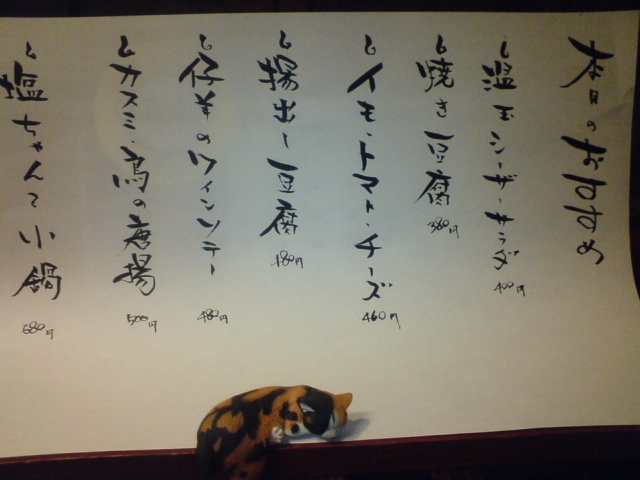 本日のおすすめ
温玉シーザーサラダ
400円
焼き豆腐
380円
イモ・トマト・チーズ
460円
揚出し豆腐
480円
仔羊のワインソテー
480円
カスミ鳥の唐揚
500円
塩ちゃんこ小鍋
680円